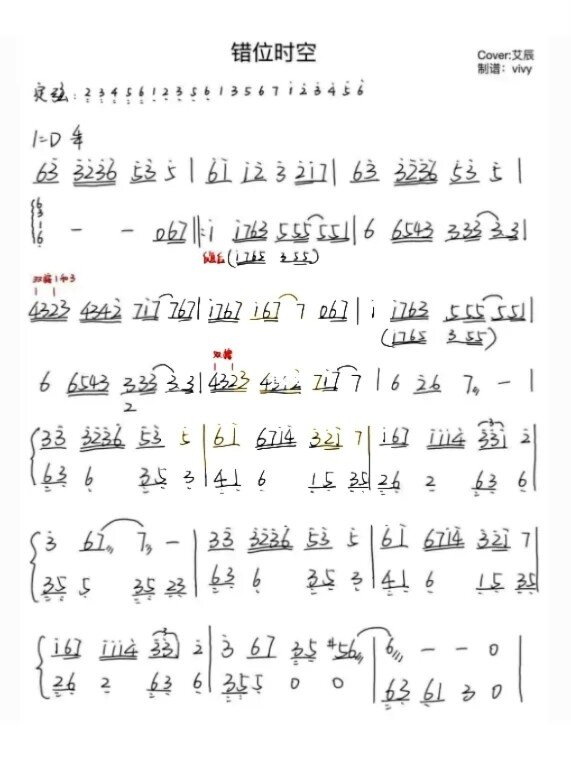 错位时空
Cover:艾辰
制谱：vivy
定弦：2 3 4 5 6 1 2 3 5 6 1 3 5 6 7 1 2 3 4 5 6
1=D 4/4
63 3236 53 5 | 61 12 3 217 | 63 3236 53 5 |
6 3 1 6 - - 067 |: 1 1763 555 551 | 6 6543 333 33 |
(1765 355)
双摇1和3
4323 4342 717 767 | 1767 167 7 067 | 1 1763 555 551 |
(1765 355)
双摇
6 6543 333 33 | 4323 4312 717 7 | 6 26 7 - |
2
33 3236 53 5 | 61 6714 321 7 | 167 1114 331 2 |
63 6 35 3 | 41 6 15 35 | 26 2 63 6 |
3 67 7 - | 33 3236 53 5 | 61 6714 321 7 |
35 5 35 23 | 63 6 35 3 | 41 6 15 35 |
167 1114 331 2 | 3 67 35 #56 | 6 - - 0
26 2 63 6 | 355 0 0 | 63 61 3 0